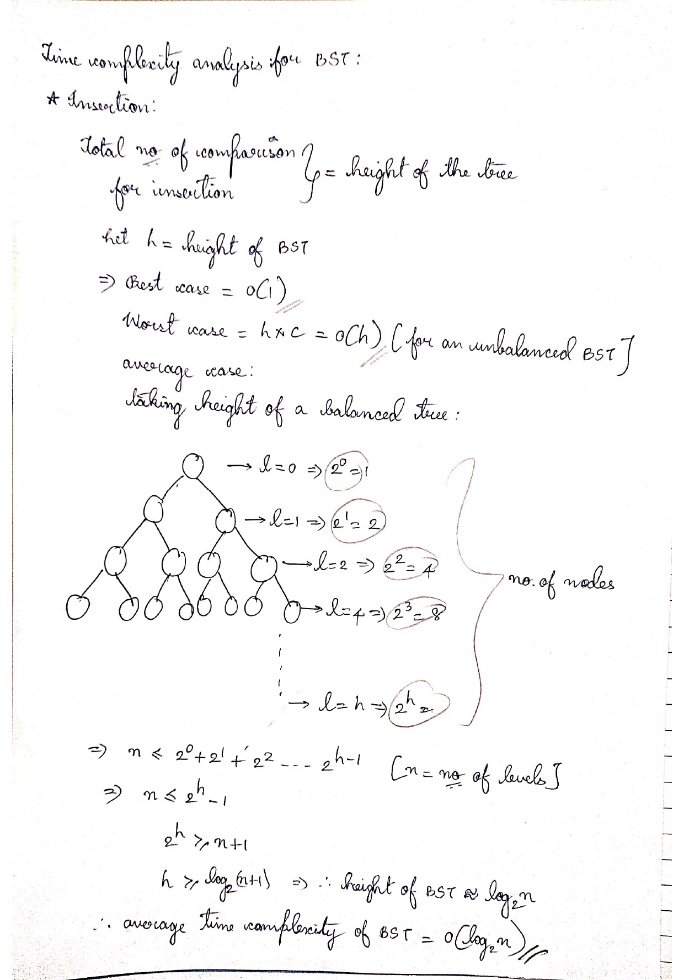 Time complexity analysis for BST:
* Insertion:
Total no of comparison
for insertion } = height of the tree
Let h = height of BST
⇒ Best case = O(1)
Worst case = h*c = O(h) [for an unbalanced BST]
average case:
taking height of a balanced tree:
→ l=0 ⇒ 2⁰=1
→ l=1 ⇒ 2¹=2
→ l=2 ⇒ 2²=4
no. of nodes
→ l=4 ⇒ 2³=8
→ l=h ⇒ 2ʰ=
⇒ n ≤ 2⁰+2¹+2² --- 2ʰ⁻¹ [n = no of levels]
⇒ n ≤ 2ʰ-1
2ʰ ≥ n+1
h ≥ log₂(n+1) ⇒ ∴ height of BST ≈ log₂n
∴ average time complexity of BST = O(log₂n)//